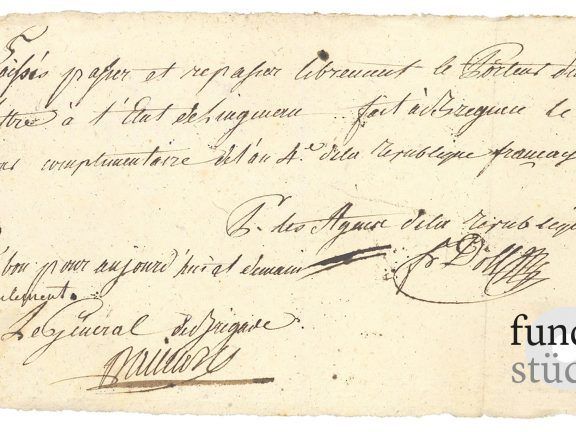 Laissés passer et repasser librement le Porteur du
ettre à l'Etat de Lingenau fait à Bregence le
complimentaire de l'an 4.e de la republique français
P. des Agence de la republiq
bon pour aujourd'hui et demain
ulement.
Le Général de Brigade.
fund
stüc